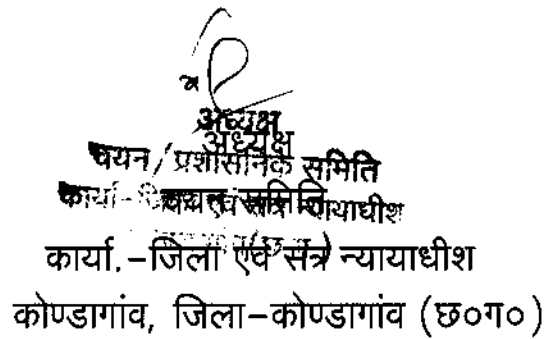 अध्यक्ष
अध्यक्ष
चयन/प्रशासनिक समिति
चयन समिति
कार्या.-जिला एवं सत्र न्यायाधीश
कोण्डागांव, जिला-कोण्डागांव (छ०ग०)